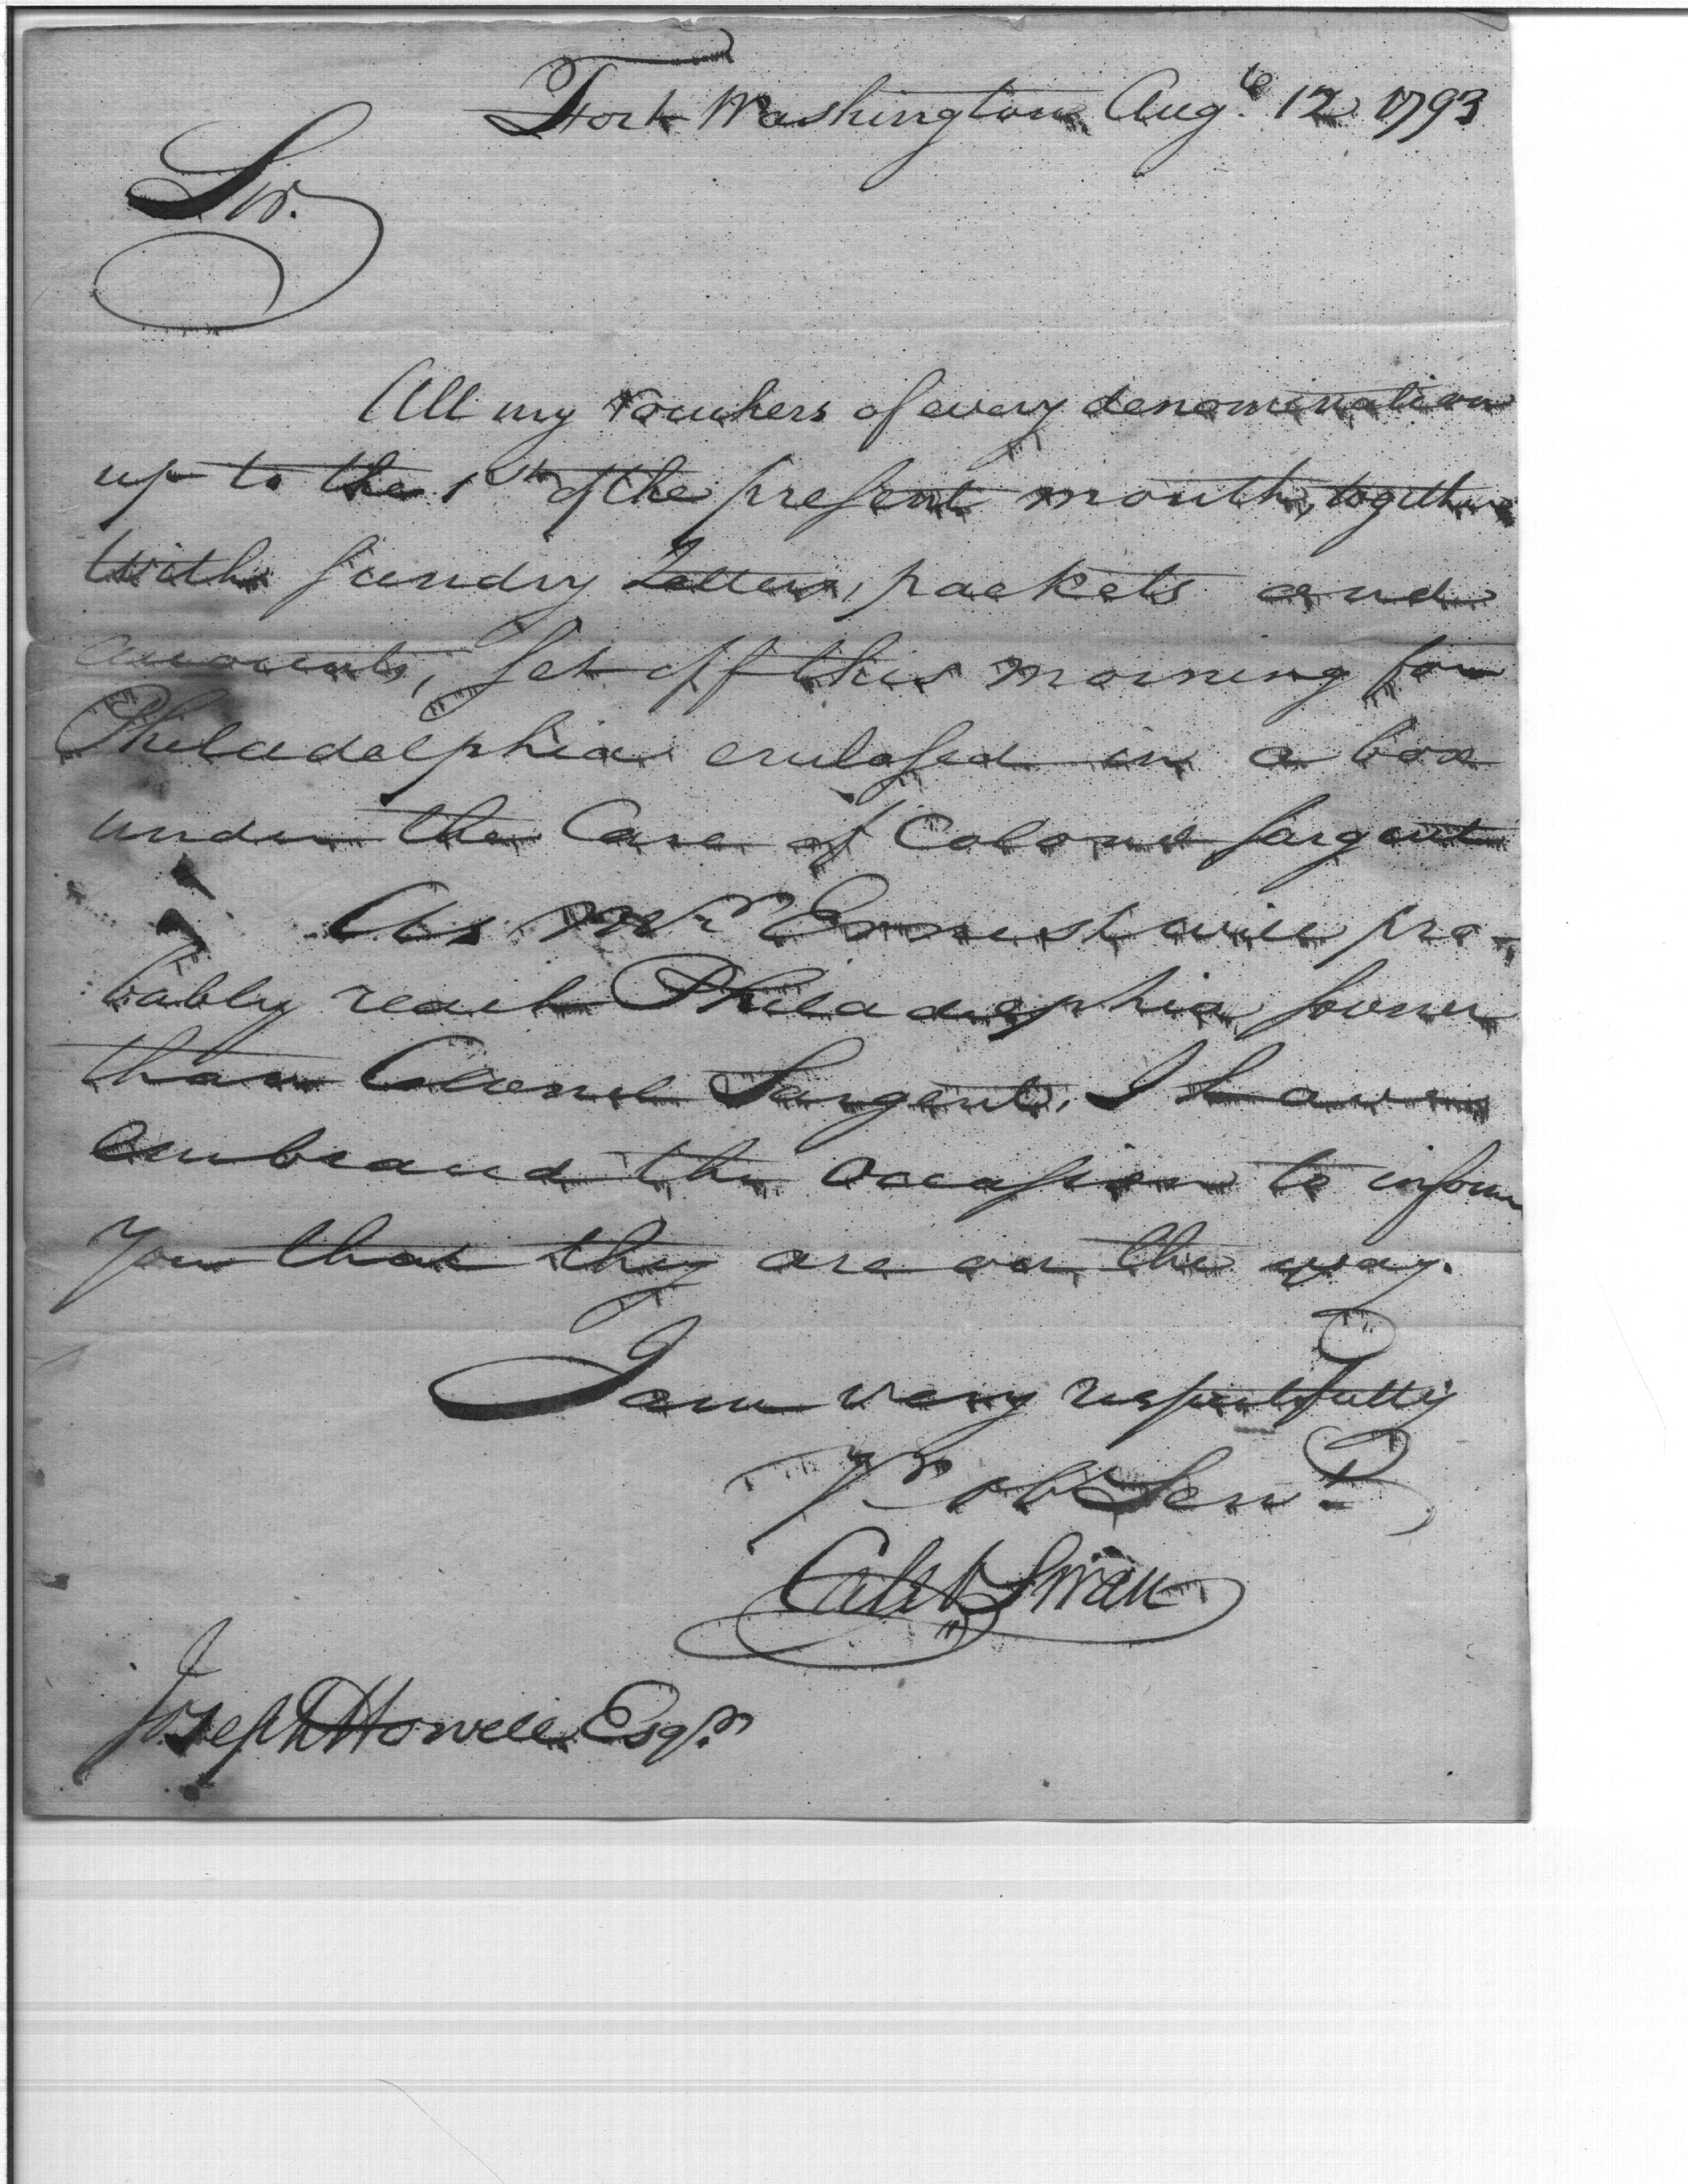 Fort Washington Augt 12 1793
Sir.
All my Vouchers of every denomination
up to the 1st of the present month, together
with sundry Letters, packets and
accounts, set off this morning for
Philadelphia enclosed in a box
under the Care of Colonel Sargent
As Mr Ernest will pro-
bably reach Philadelphia sooner
than Colonel Sargent, I have
embraced the occasion to inform
you that they are on the way.
I am very respectfully
Yr ob Servt
Caleb Swan
Joseph Howell Esqr.